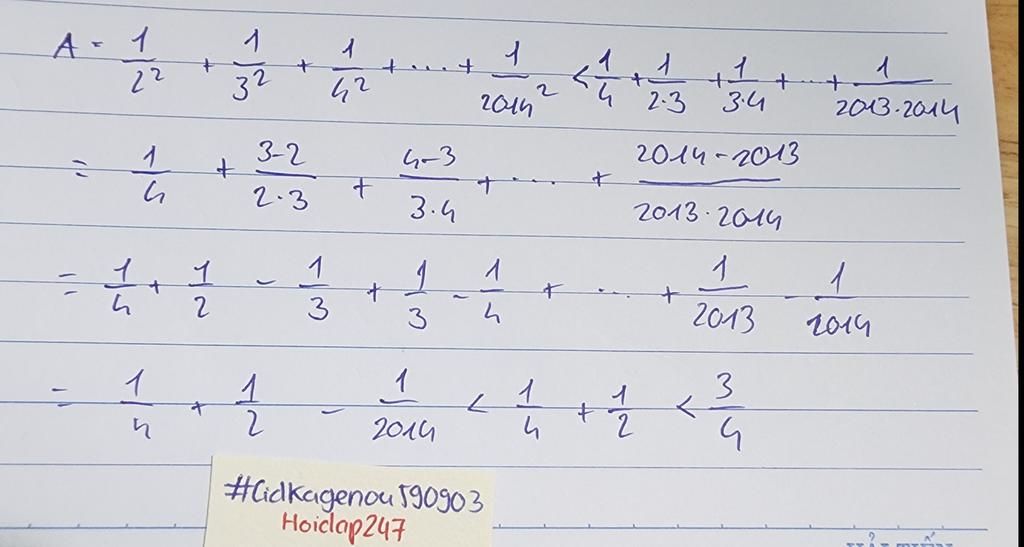 A = 1/2² + 1/3² + 1/4² + .... + 1/2014² < 1/4 + 1/2·3 + 1/3·4 + ... + 1/2013·2014
= 1/4 + 3-2/2·3 + 4-3/3·4 + .... + 2014-2013/2013·2014
= 1/4 + 1/2 - 1/3 + 1/3 - 1/4 + .... + 1/2013 - 1/2014
= 1/4 + 1/2 - 1/2014 < 1/4 + 1/2 < 3/4
#Cidkagenou590903
Hoidap247